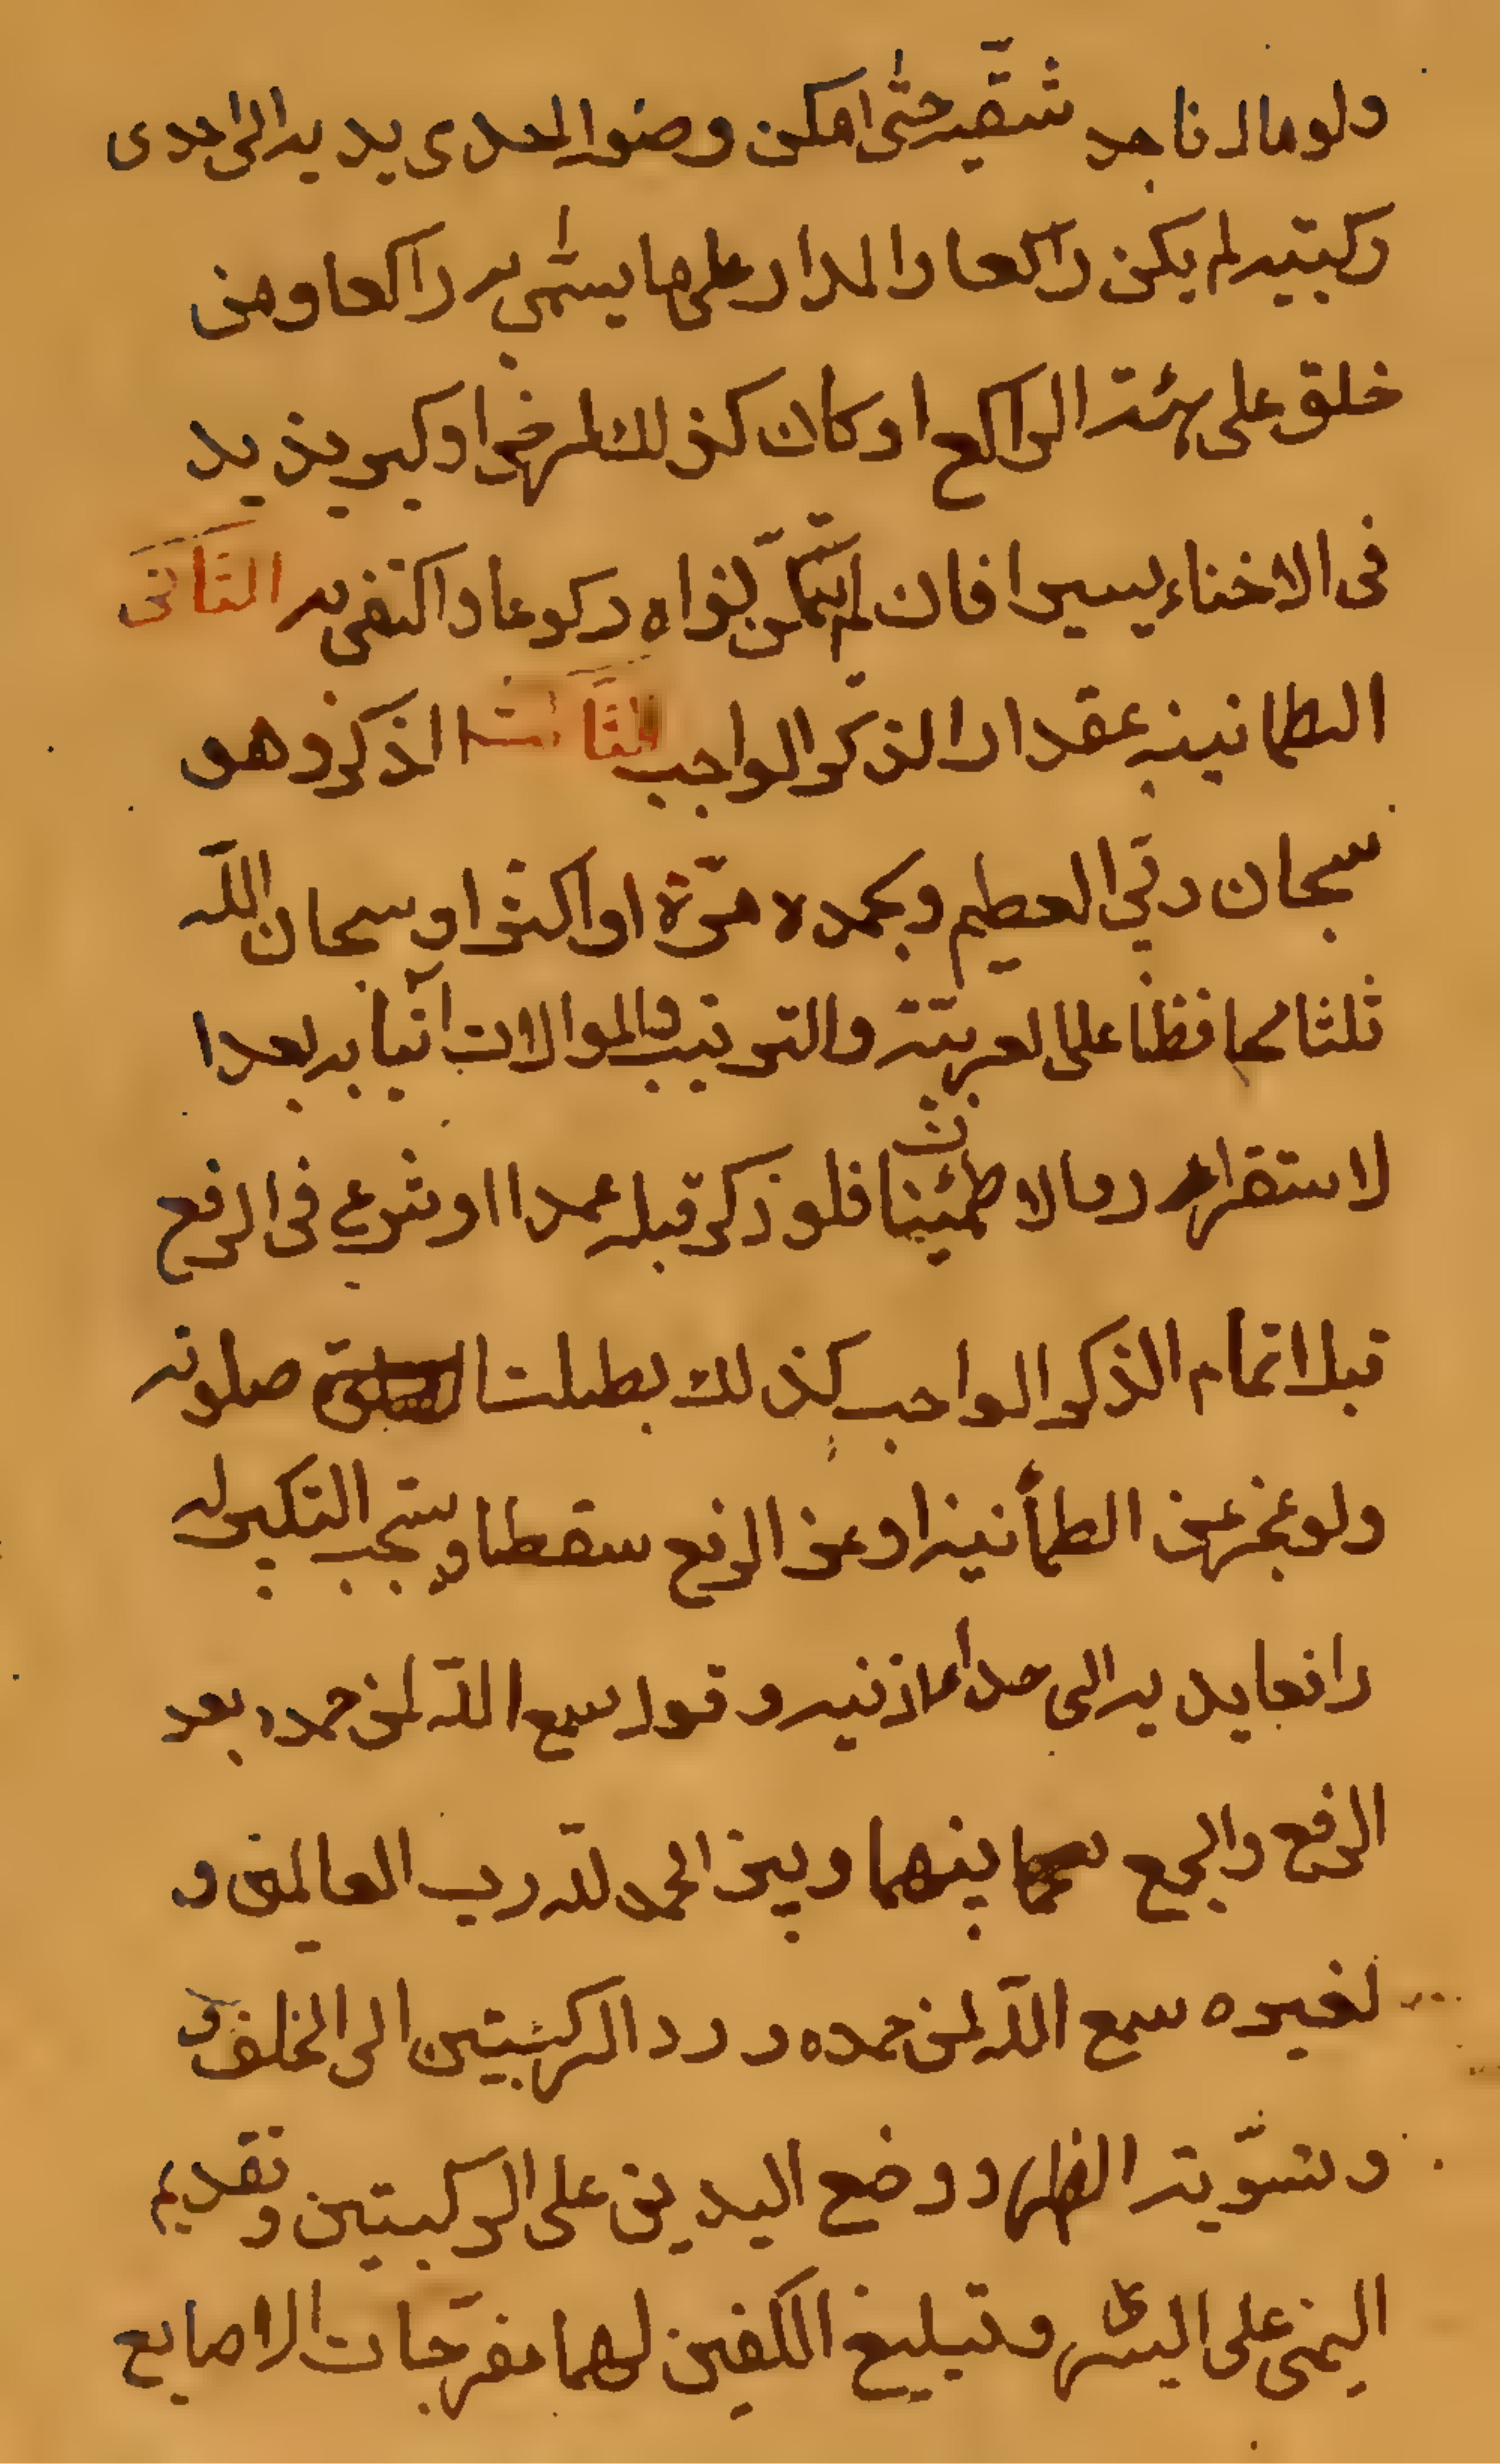 ولو مال باحد شقيه حتى امكن وضع احدى يديه الى احدى
ركبتيه لم يكن راكعا والمدار على ما يسمى به راكعا ومن
خلق على هيئة الراكع او كان كذلك لمرض او كبر يزيد
فى الانحناء يسيرا فان لم يتمكن نواه ركوعا واكتفى به الثانى
الطمانينه بمقدار الذكر الواجب الثالث الذكر وهو
سبحان ربي العظيم وبحمده مرة او اكثر او سبحان الله
ثلثا محافظا على العربية والترتيب والموالات آتيا به بعد ا
لاستقرار والاطمئنان فلو ذكر قبله عمدا او شرع فى الرفع
قبل اتمام الذكر الواجب كذلك بطلت صلوته
ولو عجز عن الطمأنينة او عن الرفع سقطا ويستحب التكبير له
رافعا يديه الى حذاء اذنيه وقول سمع الله لمن حمده بعد
الرفع والجمع بينهما وبين الحمد لله رب العالمين و
لغيره سمع الله لمن حمده ورد الركبتين الى الخلف و
وتسوية الظهر ووضع اليدين على الركبتين وتقديم
اليمنى على اليسرى وتبليغ الكفين لهما مفرجات الاصابع